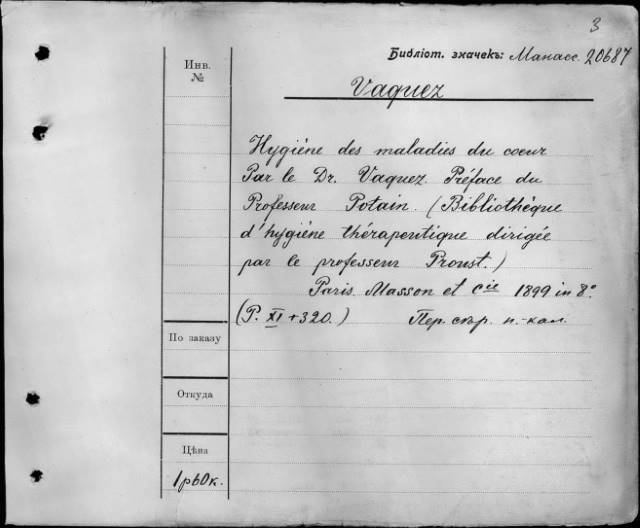 3
Библіот. значекъ: Манасс. 20687
Инв.
№
Vaquez
Hygiéne des maladies du coeur
Par le Dr. Vaquez. Préface du
Professeur Potain. (Bibliothéque
d'hygiéne thérapeutique dirigée
par le professeur Proust.)
Paris. Masson et cie 1899 in 8°.
(P. XI + 320.)
Пер. сѣр. п.-кал.
По заказу
Откуда
Цѣна
1 р 60 к.